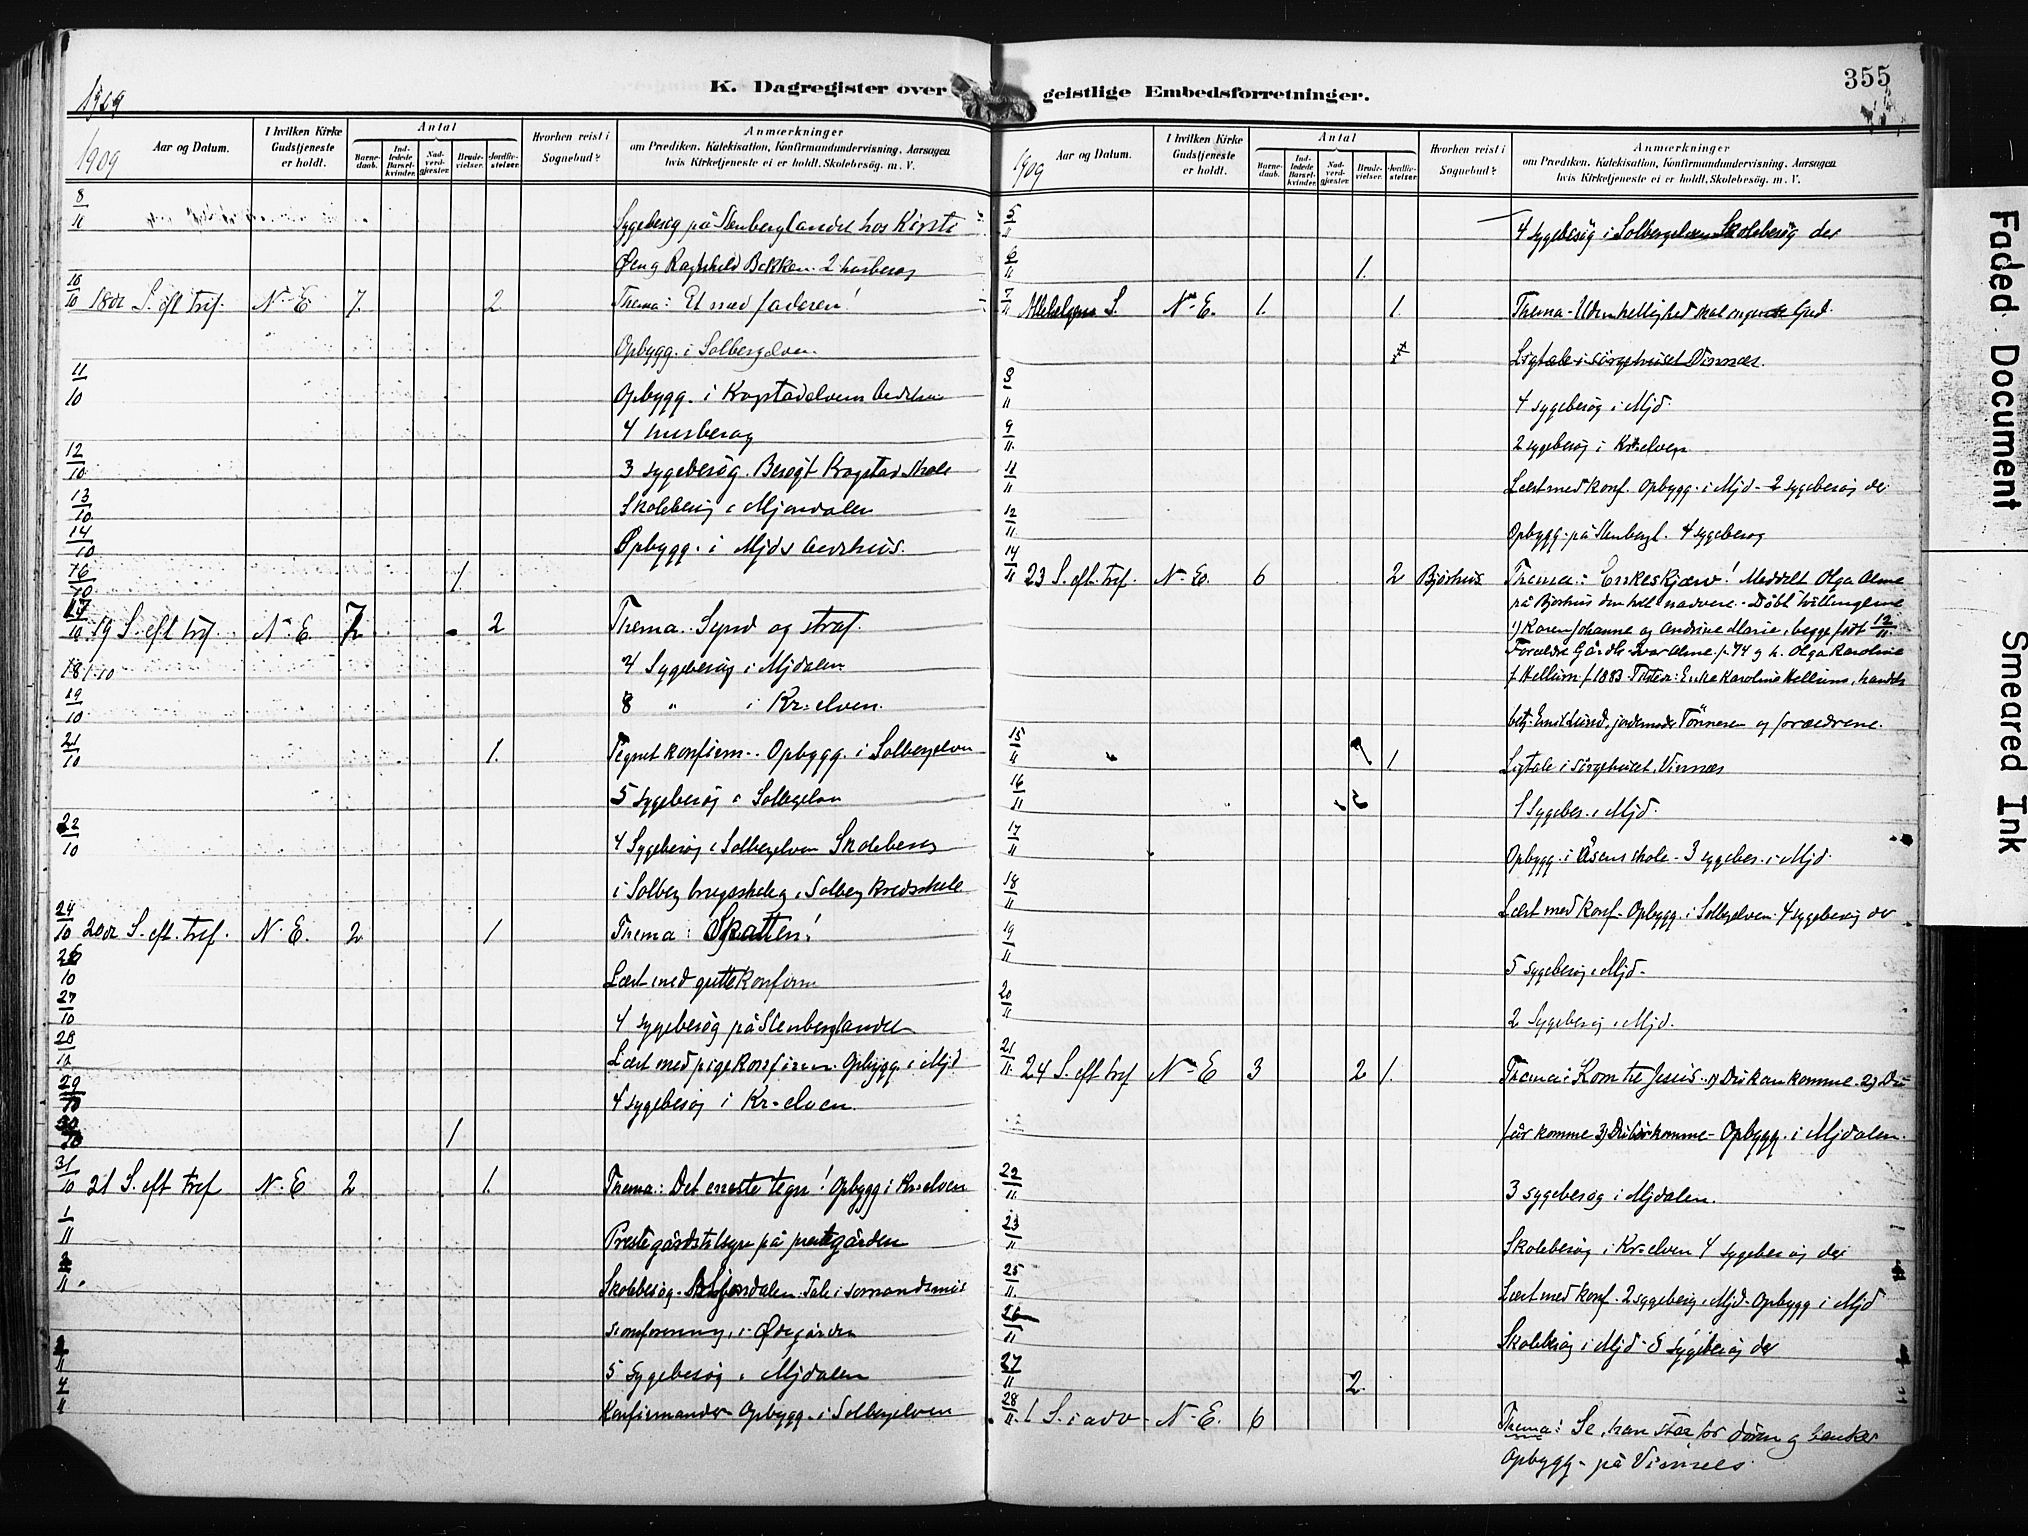 K. Dagregister over
geistlige Embedsforretninger.
355
1909
1909
Aar og Datum.
I hvilken Kirke Gudstjeneste er holdt.
Antal
Barnedaab.
Indledede Barselkvinder.
Nadverdgjæster.
Brudevielser.
Jordfæstelser.
Hvorhen reist i Sognebud?
Anmærkninger
om Prædiken. Katekisation, Konfirmandundervisning, Aarsagen
hvis Kirketjeneste ei er holdt. Skolebesøg. m. V.
8/11 Sygebesøg på Stenberglandet hos Kirsti
Øen og Ragnhild Bakken. 2 husbesøg
10/10 18de S. eft tref. N. E 7. 2 Thema: Et med faderen!
Opbygg. i Solbergelven
11/10 Opbygg. i Krogstadelvens bedehus
4 husbesøg
12/10 3 sygebesøg. Besøgt Krogstad skole
13/10 Skolebesøg i Mjøndalen
14/10 Opbygg. i Mjds bedehus.
16/10 1
17/10 19 S. eft tref. N. E. 7 2 Thema. Synd og straf.
18/10 4 Sygebesøg i Mjdalen
19/10 8 " i Kr-elven.
21/10 1. Tegnet konfirm.. Opbygg. i Solbergelven
5 sygebesøg i Solbergelven
22/10 4 Sygebesøg i Solbergelven Skolebesøg
i Solberg brugsskole og Solberg kredsskole
24/10 20de S. eft. tref. N. E. 2 1 Thema: Skatten!
26/10 Læst med guttekonfirm
27/10 4 sygebesøg på Stenberglandet
28/10 Læst med pigekonfirm. Opbygg. i Mjd
29/10 4 sygebesøg i Kr-elven.
30/10 1
31/10 21 S. eft tref N. E 2 1. Thema: Det eneste tegn! Opbygg i Kr-elven
1/11 Prestegårdstilsyn på prestegården
2/11 Skolebesøg. Mjøndalen. Tale i sømandsmis
sionsforening i Ødegården
3/11 5 Sygebesøg i Mjdalen
4/11 Konfirmander Opbygg. i Solbergelven
1909
Aar og Datum.
I hvilken Kirke Gudstjeneste er holdt.
Antal
Barnedaab.
Indledede Barselkvinder.
Nadverdgjæster.
Brudevielser.
Jordfæstelser.
Hvorhen reist i Sognebud?
Anmærkninger
om Prædiken. Katekisation, Konfirmandundervisning, Aarsagen
hvis Kirketjeneste ei er holdt. Skolebesøg. m. V.
5/11 4 sygebesøg i Solbergelven Skolebesøg der
6/11 1.
7/11 Allehelgens S. N. E. 1. 1. Thema - Uden hellighed skal ingen se Gud.
Ligtale i sørgehuset Vinnæs.
8/11 4 sygebesøg i Mjd.
9/11 2 sygebesøg i Kr-elven
11/11 Læst med konf. Opbygg. i Mjd - 2 sygebesøg der
12/11 Opbygg. på Stenbergl. 4 sygebesøg
14/11 23 S. eft. tref. N. E. 6 2 Bjørhus Thema: Enkeskjærv! Meddelt Olga Alme
på Bjørhus den hel. nadvere. Døbt tvillingerne
1) Karen Johanne og Andrine Marie, begge født 12/11
Forældre Gårdbr. Ivar Alme f. 74 og h. Olga Karoline
f Hellum f 1883. Testes: Enke Karoline Hellum, handels
betj. Emil Lund, jordemoder Tönnesen og forældrene.
15/11 1 Ligtale i sørgehuset, Vinnæs
16/11 1 Sygebes. i Mjd.
17/11 Opbygg. i Åsens skole - 3 sygebes. i Mjd.
18/11 Læst med konf - Opbygg. i Solbergelven. 4 sygebesøg der
19/11 5 sygebesøg i Mjd.
20/11 2 Sygebesøg i Mjd.
21/11 24 S. eft tref N. E 3 2 1. Thema: Kom til Jesus. 1) Du kan komme. 2) Du
får komme 3) Du bør komme - Opbygg. i Mjdalen.
22/11 3 sygebesøg i Mjdalen.
23/11 Skolebesøg i Kr-elven 4 sygebesøg der
25/11 Læst med konf. 2 sygebesøg i Mjd - Opbygg i Mjd
26/11 Skolebesøg i Mjd - 5 sygebesøg der
27/11 2.
28/11 1 S. i adv N. E. 6 Thema: Se, han står for døren og banker
Opbygg - på Vinnæs.
Faded Document
Smeared Ink